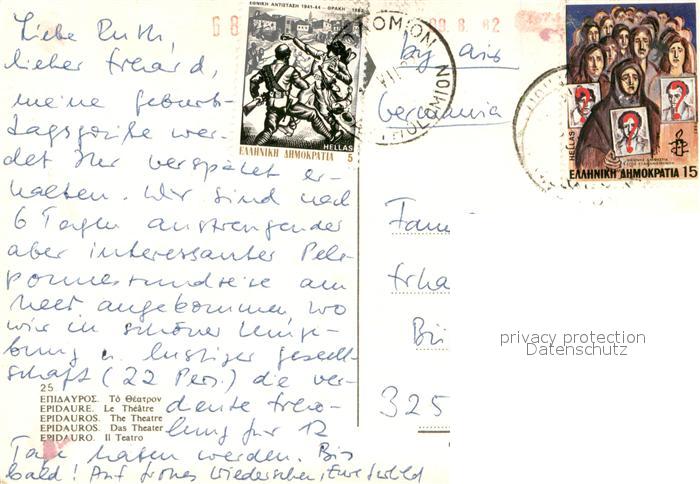 Liebe Ruth,
lieber Erhard,
meine Geburts-
tagsgrüße wer-
det Ihr verspätet er-
halten. Wir sind nach
6 Tagen anstrengender
aber interessanter Pelo-
ponnesrundreise am
Meer angekommen, wo
wir in schöner Umge-
bung u. lustiger Gesell-
schaft (22 Pers.) die ver-
diente Erho-
lung für 12
Tage haben werden. Bis
bald! Auf frohes Wiedersehen, Eure
25
ΕΠΙΔΑΥΡΟΣ. Τὸ Θέατρον
EPIDAURE. Le Théâtre
EPIDAUROS. The Theatre
EPIDAUROS. Das Theater
EPIDAURO. Il Teatro
ΕΘΝΙΚΗ ΑΝΤΙΣΤΑΣΗ 1941-44 - ΘΡΑΚΗ 1982
HELLAS
ΕΛΛΗΝΙΚΗ ΔΗΜΟΚΡΑΤΙΑ 5
HELLAS
ΕΛΛΗΝΙΚΗ ΔΗΜΟΚΡΑΤΙΑ 15
by air
Germania
Fam
Erha
325
privacy protection
Datenschutz